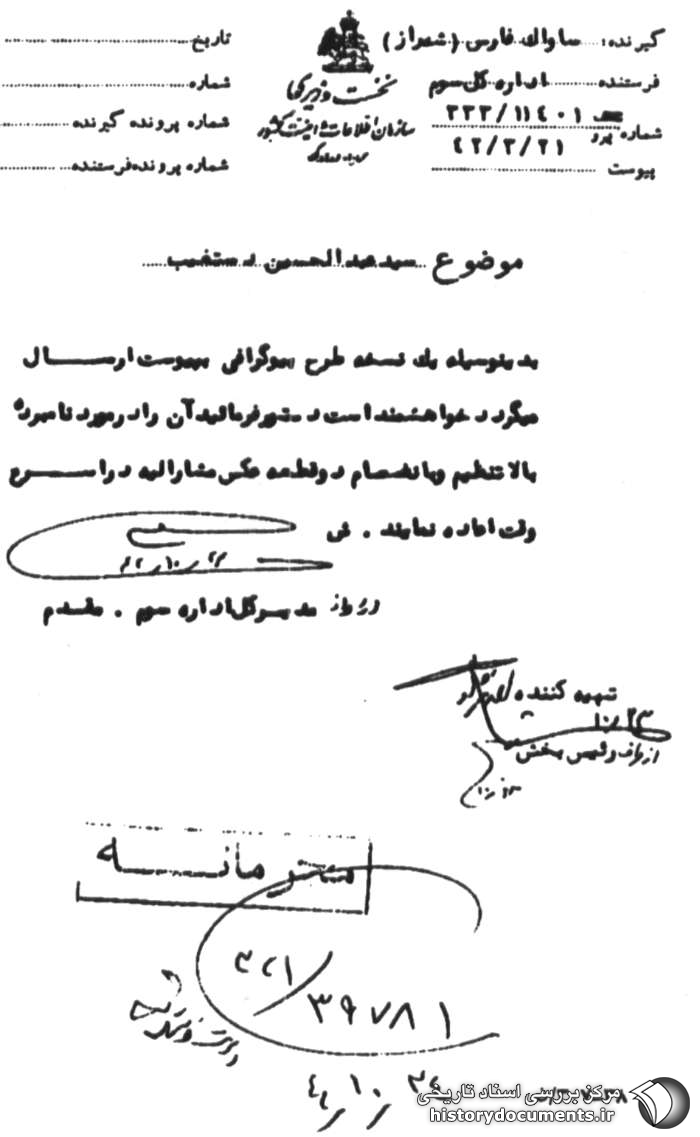 گیرنده: ساواک فارس (شیراز)
فرستنده اداره کل سوم
شماره پیرو ۳۳۳/۱۱۴۰۱
۴۲/۳/۲۱
پیوست
نخست وزیری
سازمان اطلاعات و امنیت کشور
تاریخ
شماره
شماره پرونده گیرنده
شماره پرونده فرستنده
موضوع سید عبدالحسین دستغیب
بدینوسیله یک نسخه طرح بیوگرافی بپیوست ارسال
میگردد خواهشمند است دستور فرمائید آن را در مورد نامبرده
بالا تنظیم و بانضمام دو قطعه عکس مشارالیه در اسرع
وقت اعاده نمایند. ش
مدیرکل اداره سوم. مقدم
تهیه کننده
۱۰/۲۳
از طرف رئیس بخش
محرمانه
۳۲۱/۳۹۷۸۱
۴۲/۱۰/۲۴
مرکز بررسی اسناد تاریخی
historydocuments.ir